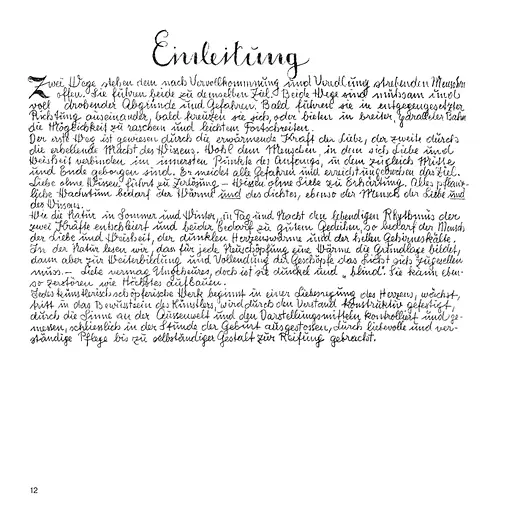 Einleitung
Zwei Wege stehen dem nach Vervollkommnung und Veredlung strebenden Menschen
offen. Sie führen beide zu demselben Ziel. Beide Wege sind mühsam und
voll drohender Abgründe und Gefahren. Bald führen sie in entgegengesetzter
Richtung auseinander, bald kreuzen sie sich, oder bieten in breiter, paralleler Bahn
die Möglichkeit zu raschem und leichtem Fortschreiten.
Der erste Weg ist gewiesen durch die erwärmende Kraft der Liebe, der zweite durch
die erhellende Macht des Wissens. Wohl dem Menschen, in dem sich Liebe und
Weisheit verbinden im innersten Punkte des Anfangs, in dem zugleich Mitte
und Ende geborgen sind. Er meidet alle Gefahren und erreicht ungebrochen das Ziel.
Liebe ohne Wissen führt zu Zerlösung – Wissen ohne Liebe zu Erhärtung. Alles pflanz-
liche Wachstum bedarf der Wärme und des Lichtes, ebenso der Mensch der Liebe und
des Wissens.
Wie die Natur in Sommer und Winter, in Tag und Nacht den lebendigen Rhythmus der
zwei Kräfte entschleiert und beider Bedarf zu gutem Gedeihen, so bedarf der Mensch
der Liebe und Weisheit, der dunklen Herzenswärme und der hellen Gehirneskälte.
In der Natur lesen wir, daß für jede Neuschöpfung eine Wärme die Grundlage bildet,
dann aber zur Weiterbildung und Vollendung der Geschöpfe das Licht sich zugesellen
muss. – Liebe vermag Ungeheures, doch ist sie dunkel und „blind". Sie kann eben-
so zerstören wie Höchstes aufbauen.
Jedes künstlerisch-schöpferische Werk beginnt in einer Liebesregung des Herzens, wächst,
tritt in das Bewusstsein des Künstlers, wird durch den Verstand konstruktiv gefestigt,
durch die Sinne an der Aussenwelt und den Darstellungsmitteln kontrolliert und ge-
messen, schliesslich in der Stunde der Geburt ausgestossen, durch liebevolle und ver-
ständige Pflege bis zu selbständiger Gestalt zur Reifung gebracht.
12